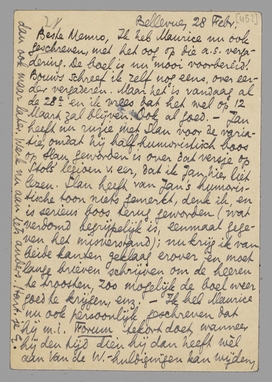 Bellevue, 28 Febr. [457]
Beste Menno, Ik heb Maurice nu ook
geschreven, met het oog op die a.s. verga-
dering. De boel is nu mooi voorbereid!
Bouws schreef ik zelf nog eens, over eer-
der vergaderen. Maar het is vandaag al
de 28e en ik vrees dat het wel op 12
Maart zal blijven. Ook al goed. — Jan
heeft nu ruzie met Slau voor de varia-
tie, omdat hij half-humoristisch boos
op Slau geworden is over dat versje op
Stols' legioen v. eer, dat ik Jan hier liet
lezen. Slau heeft van Jan's humoris-
tische toon niets gemerkt, denk ik, en
is serieus boos terug geworden (wat
verdomd begrijpelijk is, eenmaal gege-
ven het misverstand); nu krijg ik van
beide kanten geklaag erover en moet
lange brieven schrijven om de heeren
te troosten, zoo mogelijk de boel weer
goed te krijgen, enz. — Ik heb Maurice
nu ook persoonlijk geschreven dat
hij m.i. Forum tekort doet, wanneer
hij den tijd dien hij dan heeft wèl
aan Van de W.-huldigingen kan wijden,
dan ook maar later. Werk nu aan iets anders. Hart. je E.